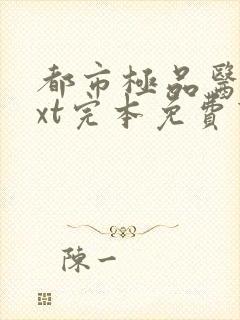 都市極品醫
xt完本免費
陳一